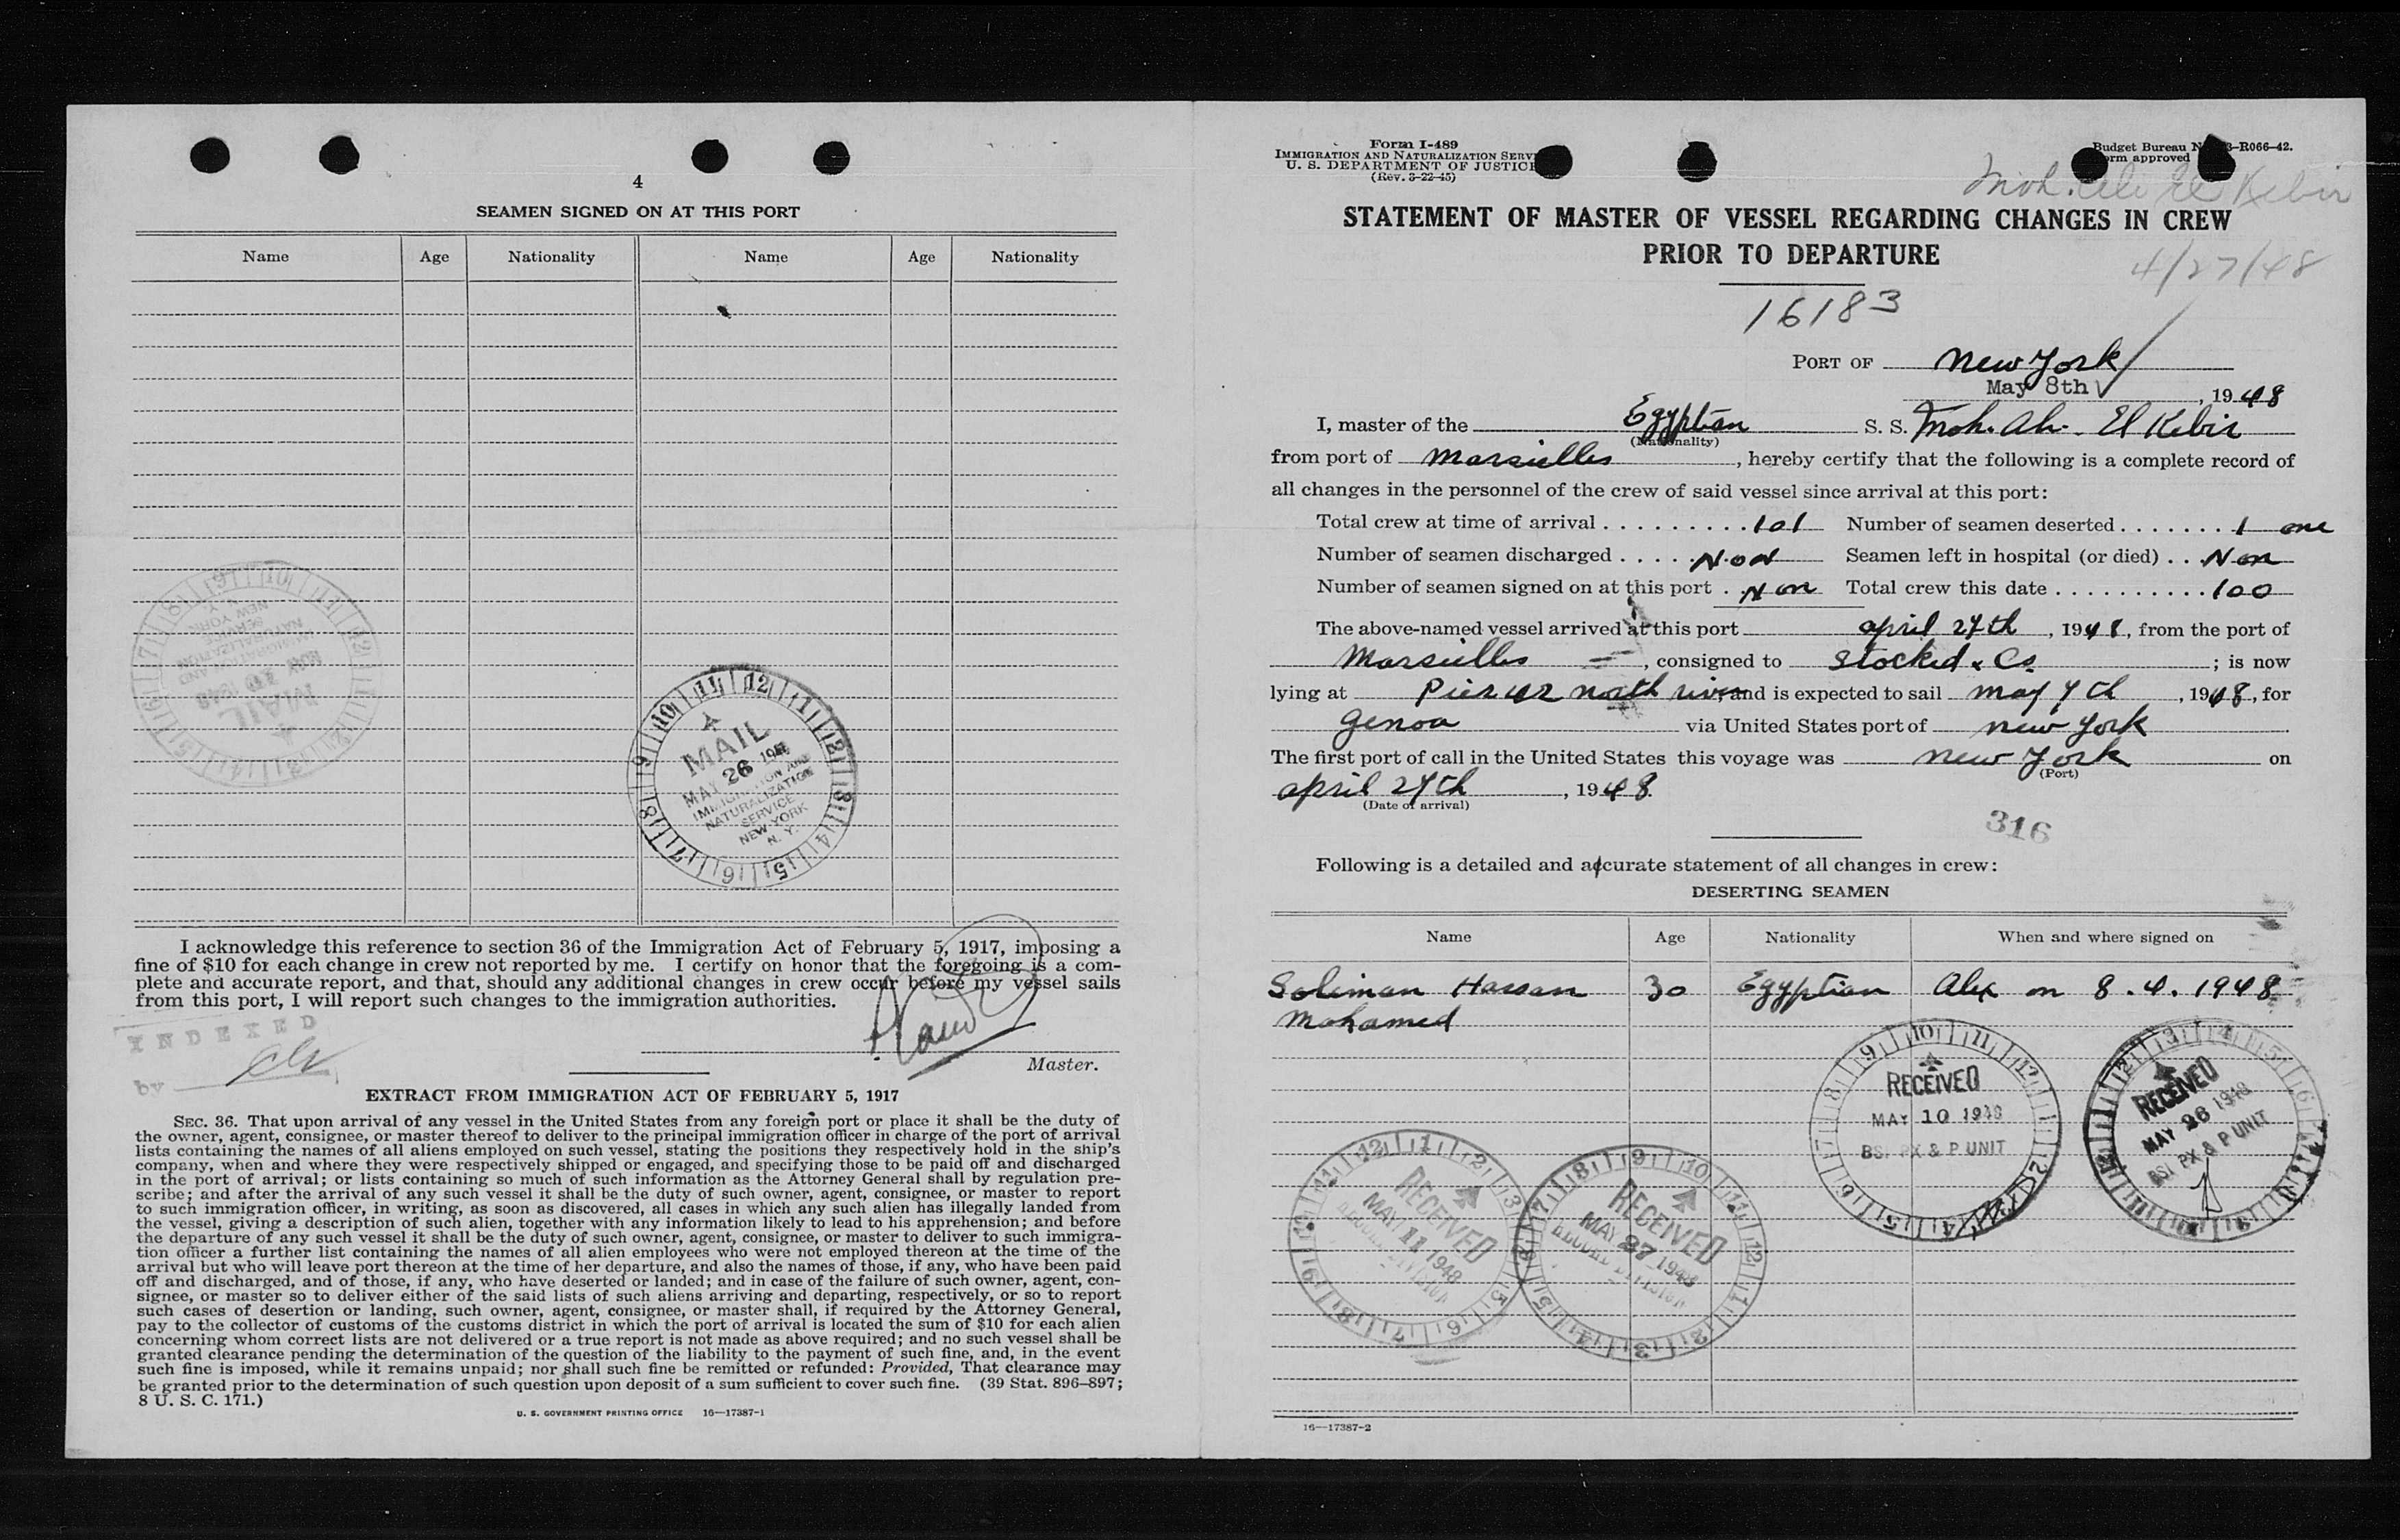 4
SEAMEN SIGNED ON AT THIS PORT
Name Age Nationality Name Age Nationality
MAIL
MAY 26 1948
IMMIGRATION AND
NATURALIZATION
SERVICE
NEW YORK
N. Y.
I acknowledge this reference to section 36 of the Immigration Act of February 5, 1917, imposing a
fine of $10 for each change in crew not reported by me. I certify on honor that the foregoing is a com-
plete and accurate report, and that, should any additional changes in crew occur before my vessel sails
from this port, I will report such changes to the immigration authorities.
INDEXED
by
Master.
EXTRACT FROM IMMIGRATION ACT OF FEBRUARY 5, 1917
SEC. 36. That upon arrival of any vessel in the United States from any foreign port or place it shall be the duty of
the owner, agent, consignee, or master thereof to deliver to the principal immigration officer in charge of the port of arrival
lists containing the names of all aliens employed on such vessel, stating the positions they respectively hold in the ship's
company, when and where they were respectively shipped or engaged, and specifying those to be paid off and discharged
in the port of arrival; or lists containing so much of such information as the Attorney General shall by regulation pre-
scribe; and after the arrival of any such vessel it shall be the duty of such owner, agent, consignee, or master to report
to such immigration officer, in writing, as soon as discovered, all cases in which any such alien has illegally landed from
the vessel, giving a description of such alien, together with any information likely to lead to his apprehension; and before
the departure of any such vessel it shall be the duty of such owner, agent, consignee, or master to deliver to such immigra-
tion officer a further list containing the names of all alien employees who were not employed thereon at the time of the
arrival but who will leave port thereon at the time of her departure, and also the names of those, if any, who have been paid
off and discharged, and of those, if any, who have deserted or landed; and in case of the failure of such owner, agent, con-
signee, or master so to deliver either of the said lists of such aliens arriving and departing, respectively, or so to report
such cases of desertion or landing, such owner, agent, consignee, or master shall, if required by the Attorney General,
pay to the collector of customs of the customs district in which the port of arrival is located the sum of $10 for each alien
concerning whom correct lists are not delivered or a true report is not made as above required; and no such vessel shall be
granted clearance pending the determination of the question of the liability to the payment of such fine, and, in the event
such fine is imposed, while it remains unpaid; nor shall such fine be remitted or refunded: Provided, That clearance may
be granted prior to the determination of such question upon deposit of a sum sufficient to cover such fine. (39 Stat. 896–897;
8 U. S. C. 171.)
U. S. GOVERNMENT PRINTING OFFICE 16—17387-1
Form I-489
IMMIGRATION AND NATURALIZATION SERV
U. S. DEPARTMENT OF JUSTICE
(Rev. 3-22-45)
Budget Bureau N 3-R066-42.
orm approved
Moh. Ali El Kebir
STATEMENT OF MASTER OF VESSEL REGARDING CHANGES IN CREW
PRIOR TO DEPARTURE
4/27/48
16183
PORT OF New York
May 8th, 1948
I, master of the Egyptian S. S. Moh. Ali. El Kebir
(Nationality)
from port of Marseilles, hereby certify that the following is a complete record of
all changes in the personnel of the crew of said vessel since arrival at this port:
Total crew at time of arrival . . . . . . . . . 101 Number of seamen deserted . . . . . . . 1 one
Number of seamen discharged . . . . . Non Seamen left in hospital (or died) . . Non
Number of seamen signed on at this port . Non Total crew this date . . . . . . . . . . 100
The above-named vessel arrived at this port april 27th, 1948, from the port of
Marseilles, consigned to Stocked & Co; is now
lying at Pier 42 north river, and is expected to sail may 7th, 1948, for
genoa via United States port of new york
The first port of call in the United States this voyage was new york on
(Port)
april 27th, 1948.
(Date of arrival)
316
Following is a detailed and accurate statement of all changes in crew:
DESERTING SEAMEN
Name Age Nationality When and where signed on
Soliman Hassan 30 Egyptian Alex on 8.4.1948
Mohamed
RECEIVED
MAY 10 1948
BSI PX & P UNIT
RECEIVED
MAY 26 1948
BSI PX & P UNIT
RECEIVED
MAY 11 1948
RECORD DIVISION
RECEIVED
MAY 27 1948
RECORD DIVISION
16—17387-2